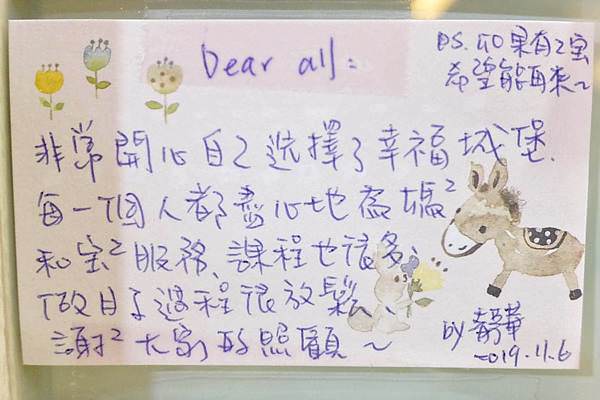 Dear all:
非常開心自己選擇了幸福城堡、
每一個人都盡心地為媽²
和宝²服務、課程也很多、
做月子過程很放鬆、
謝²大家的照顧～
PS. 如果有2宝
希望能再來～
by
2019.11.6